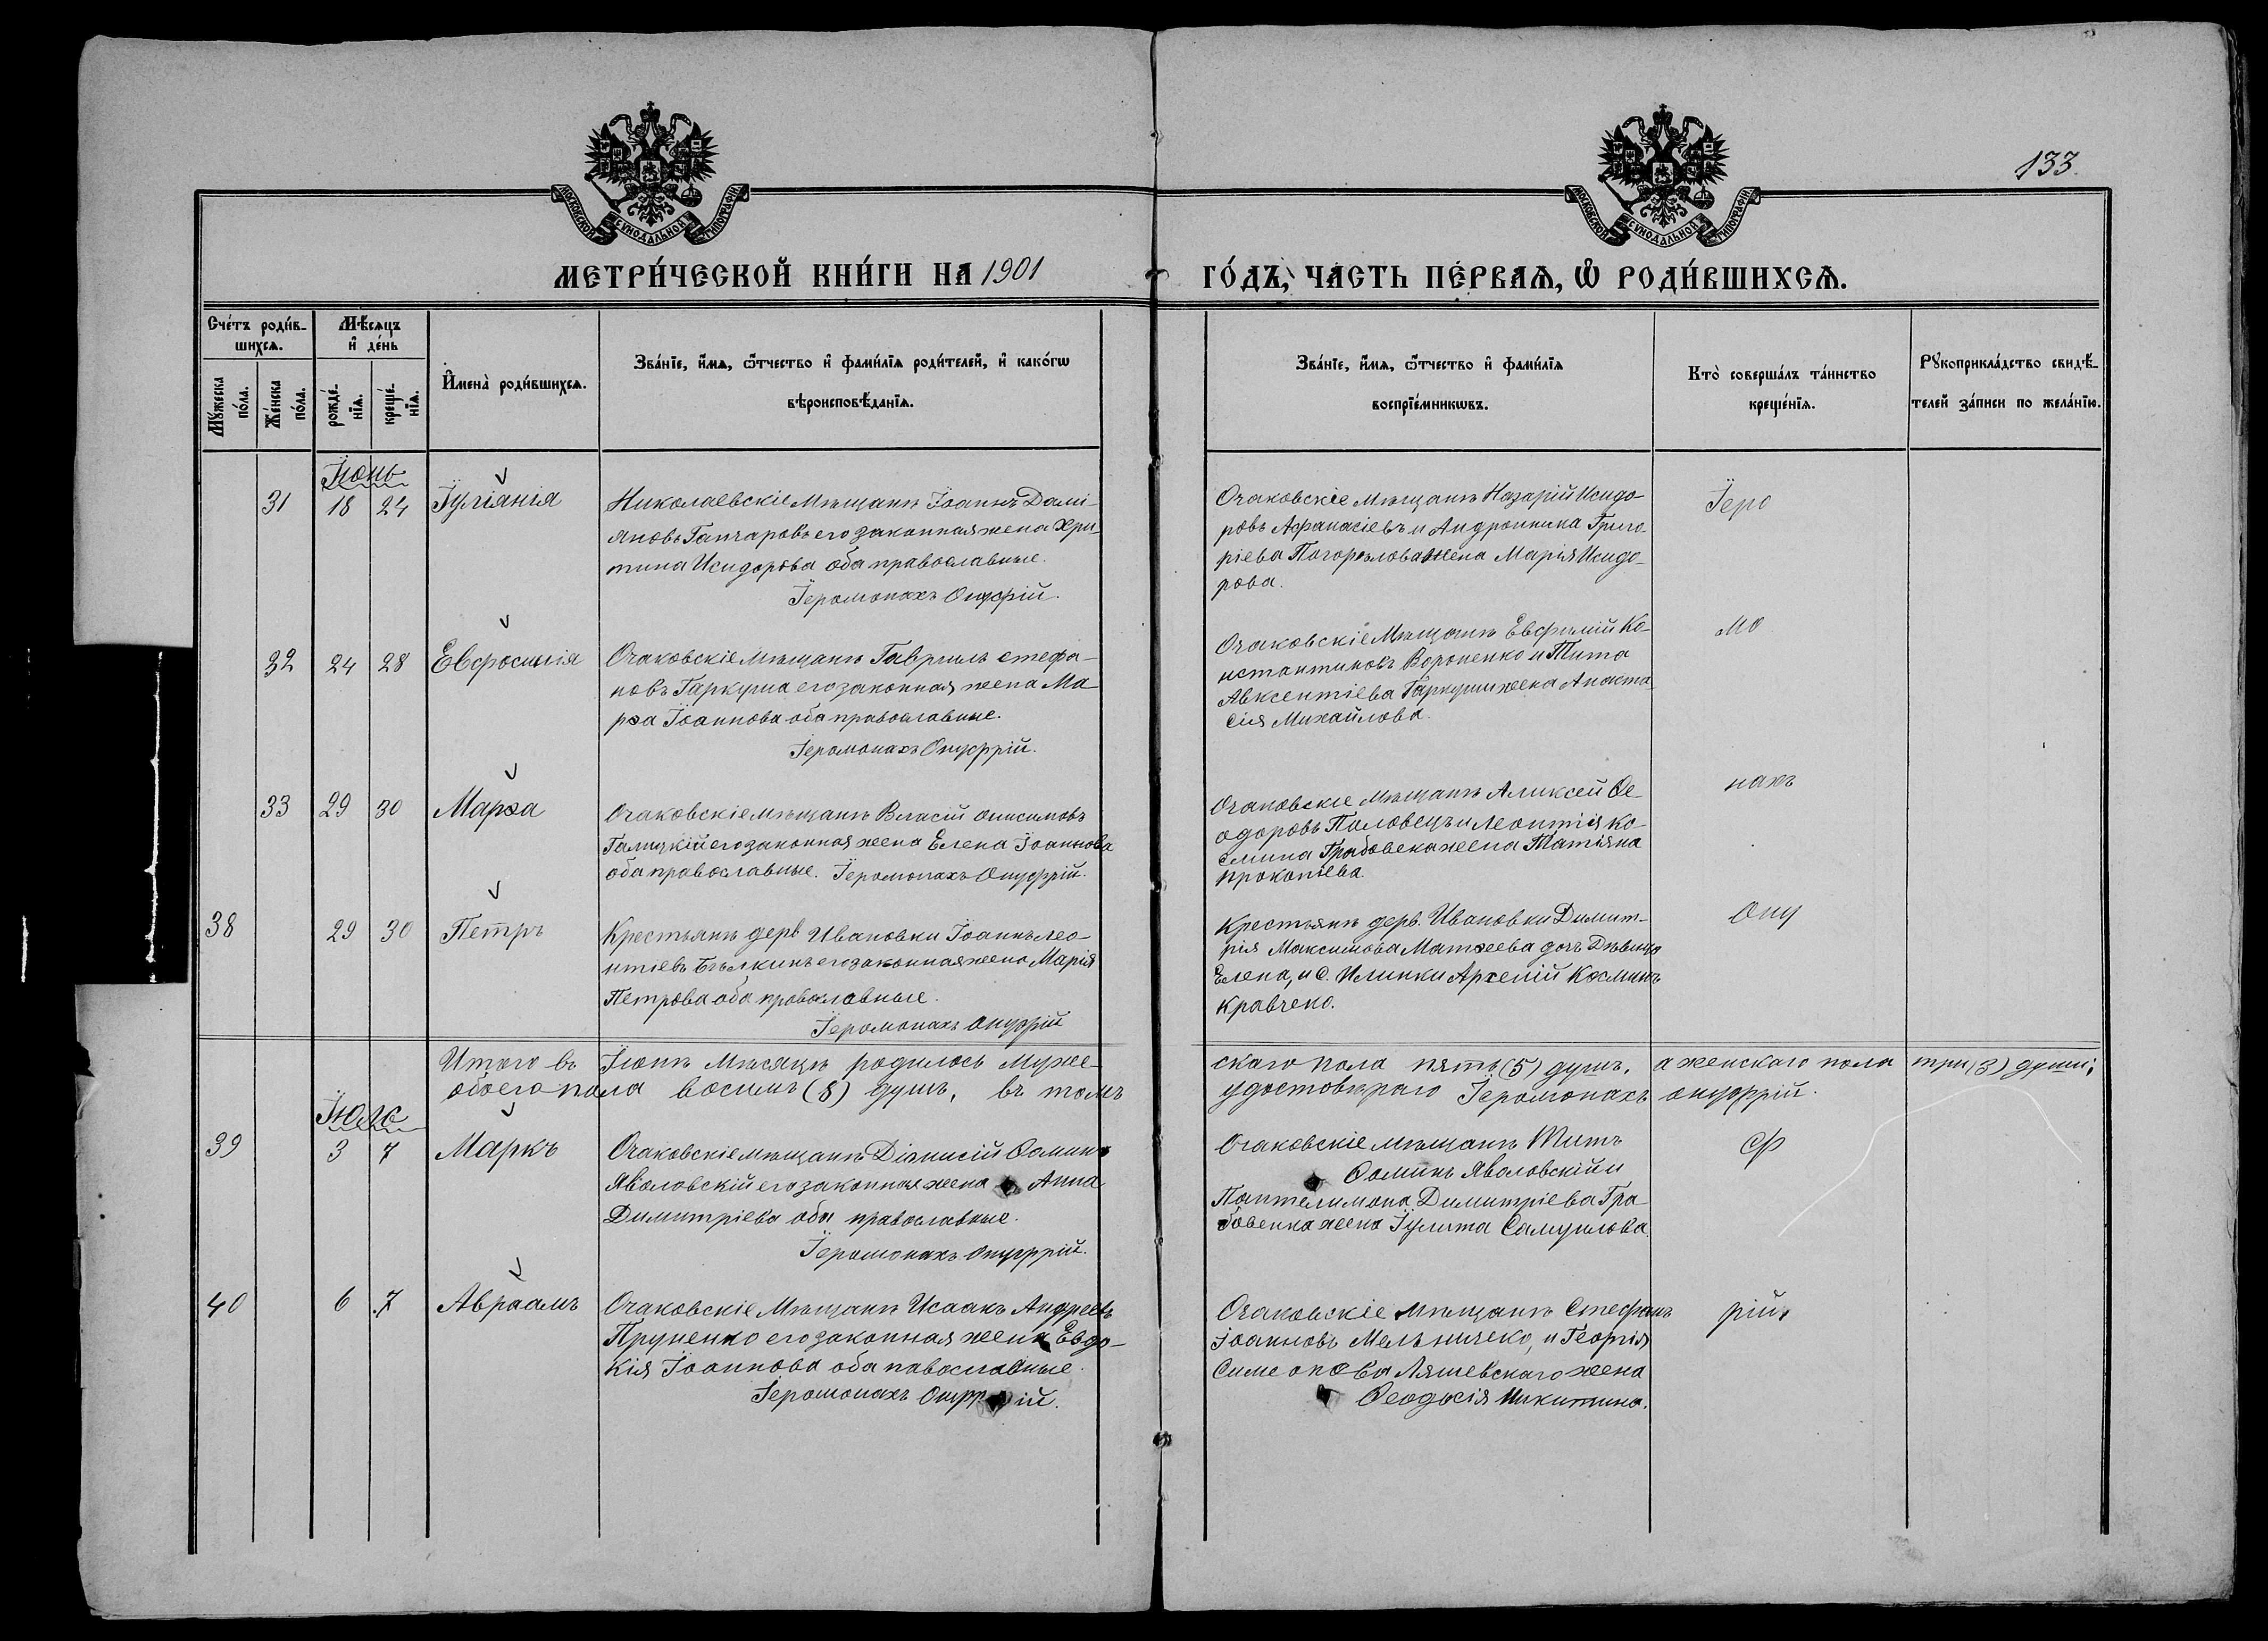 133.
МОСКОВСКОЙ СѴНОДАЛЬНОЙ ТИПОГРАФІИ
МОСКОВСКОЙ СѴНОДАЛЬНОЙ ТИПОГРАФІИ
МЕТРИ́ЧЕСКОЙ КНИ́ГИ НА 1901
ГО́ДЪ, ЧА́СТЬ ПЕ́РВАѦ, Ѡ҆ РОДИ́ВШИХСѦ.
Сче́тъ роди́в-
шихсѧ.
Мꙋ́жеска по́ла.
Же́нска по́ла.
Мѣ́сѧцъ
и҆ де́нь
рожде́-
нїѧ.
креще́-
нїѧ.
И҆мена̀ роди́вшихсѧ.
Зва́нїе, и҆́мѧ, ѻ҆́тчество и҆ фами́лїѧ роди́телей, и҆ како́гѡ
вѣроисповѣ́данїѧ.
Зва́нїе, и҆́мѧ, ѻ҆́тчество и҆ фами́лїѧ
воспрїе́мникѡвъ.
Кто̀ соверша́лъ та́инство
креще́нїѧ.
Рꙋкоприкла́дство свидѣ́-
телей за́писи по жела́нїю.
Іюнь
31 18 24 Іуліанія
Николаевскіе Мѣщанъ Іоаннъ Домі-
яновъ Ганчаровъ его законная жена Хри-
тина Исидорова оба православные.
Іеромонахъ Онуфрій.
Очаковскіе Мѣщанъ Назарій Исидо-
ровъ Афанасіевъ и Андроника Григо-
ріева Погорѣлова жена Марія Исидо-
рова.
Іеро
32 24 28 Евфросинія
Очаковскіе мѣщанъ Гавріилъ Стефа-
новъ Гаркуша его законная жена Ма-
рѳа Іоаннова оба православные.
Іеромонахъ Онуфрій.
Очаковскіе Мѣщанъ Евфимій Ко-
нстантиновъ Вороненко и Тита
Авксентіева Гаркуши жена Анаста-
сія Михайлова.
мо
33 29 30 Марѳа
Очаковскіе мѣщанъ Власій Онисимовъ
Галицкій его законная жена Елена Іоаннова
оба православные. Іеромонахъ Онуфрій.
Очаковскіе мѣщанъ Аликсей Ѳе-
одоровъ Половецъ и Леонтія Ко-
смина Грабовска жена Татіяна
Прокопіева.
нахъ
38 29 30 Петръ
Крестьянъ дерв Ивановки Іоаннъ Лео-
нтіевъ Бѣлкинъ его законная жена Марія
Петрова оба православные.
Іеромонахъ Онуфрій
Крестьянъ дерв. Ивановки Димит-
рія Максимова Матѳеева дочь Дѣвица
Елена, и с. Илинки Архелій Косминъ
Кравчено.
Ону
Итого въ Іюнѣ Мѣсяцѣ родилось Муже-
обоего пола восимъ (8) душъ, въ томъ
скаго пола пять (5) душъ, а женскаго пола три (3) души;
удостовѣряю Іеромонахъ Онуфрій.
Іюль
39 3 7 Маркъ
Очаковскіе мѣщанъ Діанисій Ѳоминъ
Яволовскій его законная жена Анна
Димитріева оба православные.
Іеромонахъ Онуфрій.
Очаковскіе мѣщанъ Титъ
Ѳоминъ Яволовскій и
Пантелимона Димитріева Гра-
бовенка жена Іулита Самуилова.
ф
40 6 7 Авраамъ
Очаковскіе Мѣщанъ Исаакъ Андреевъ
Пруненко его законная жена Евдо-
кія Іоаннова оба павославные.
Іеромонахъ Онуфрій.
Очаковскіе мѣщанъ Стефанъ
Іоанновъ Мельничеко, и Георгія
Симеонова Ляшевскаго жена
Ѳеодосія Никитина.
рій